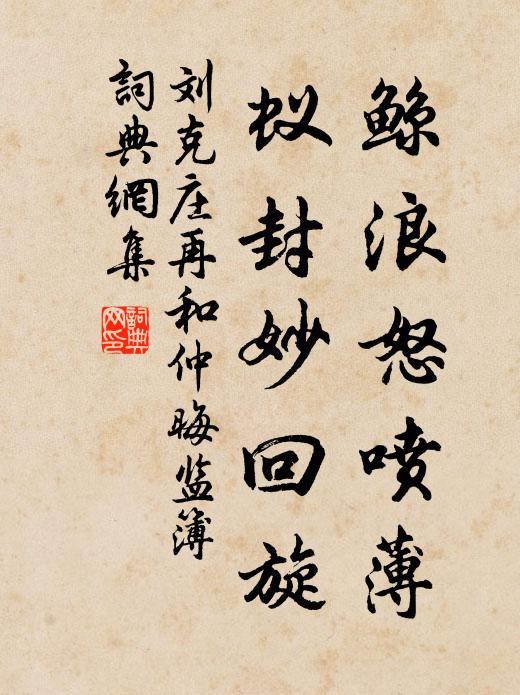 鲸浪怒喷薄
蚁封妙回旋
刘克庄再和仲晦监簿
詞典網集
詞典网印